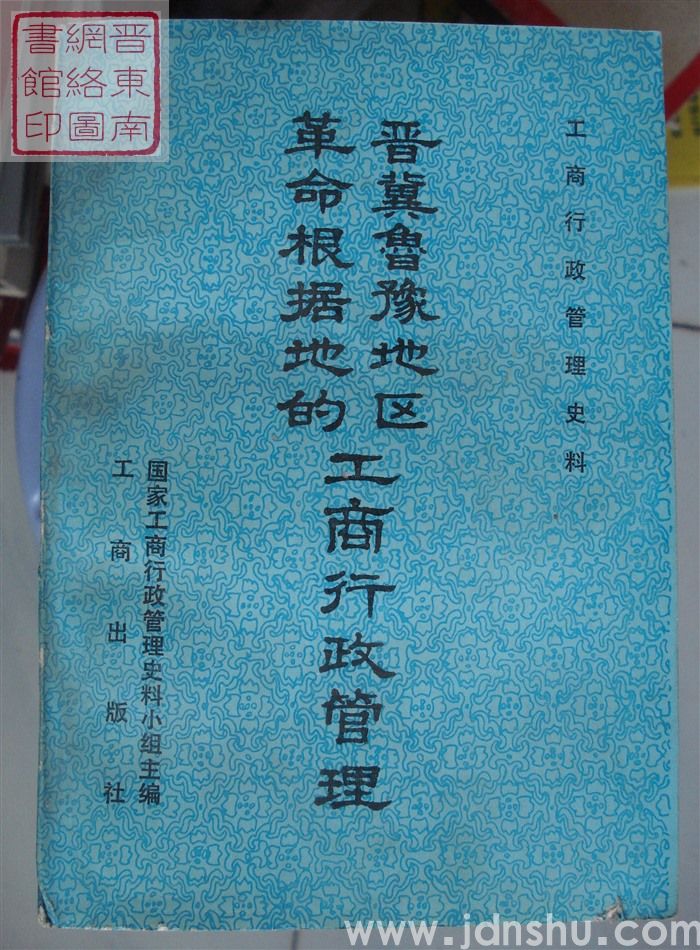 工商行政管理史料
晋冀鲁豫地区
革命根据地的
工商行政管理
国家工商行政管理史料小组主编
工商出版社
晋東南
網絡圖
書館印
www.jdnshu.com